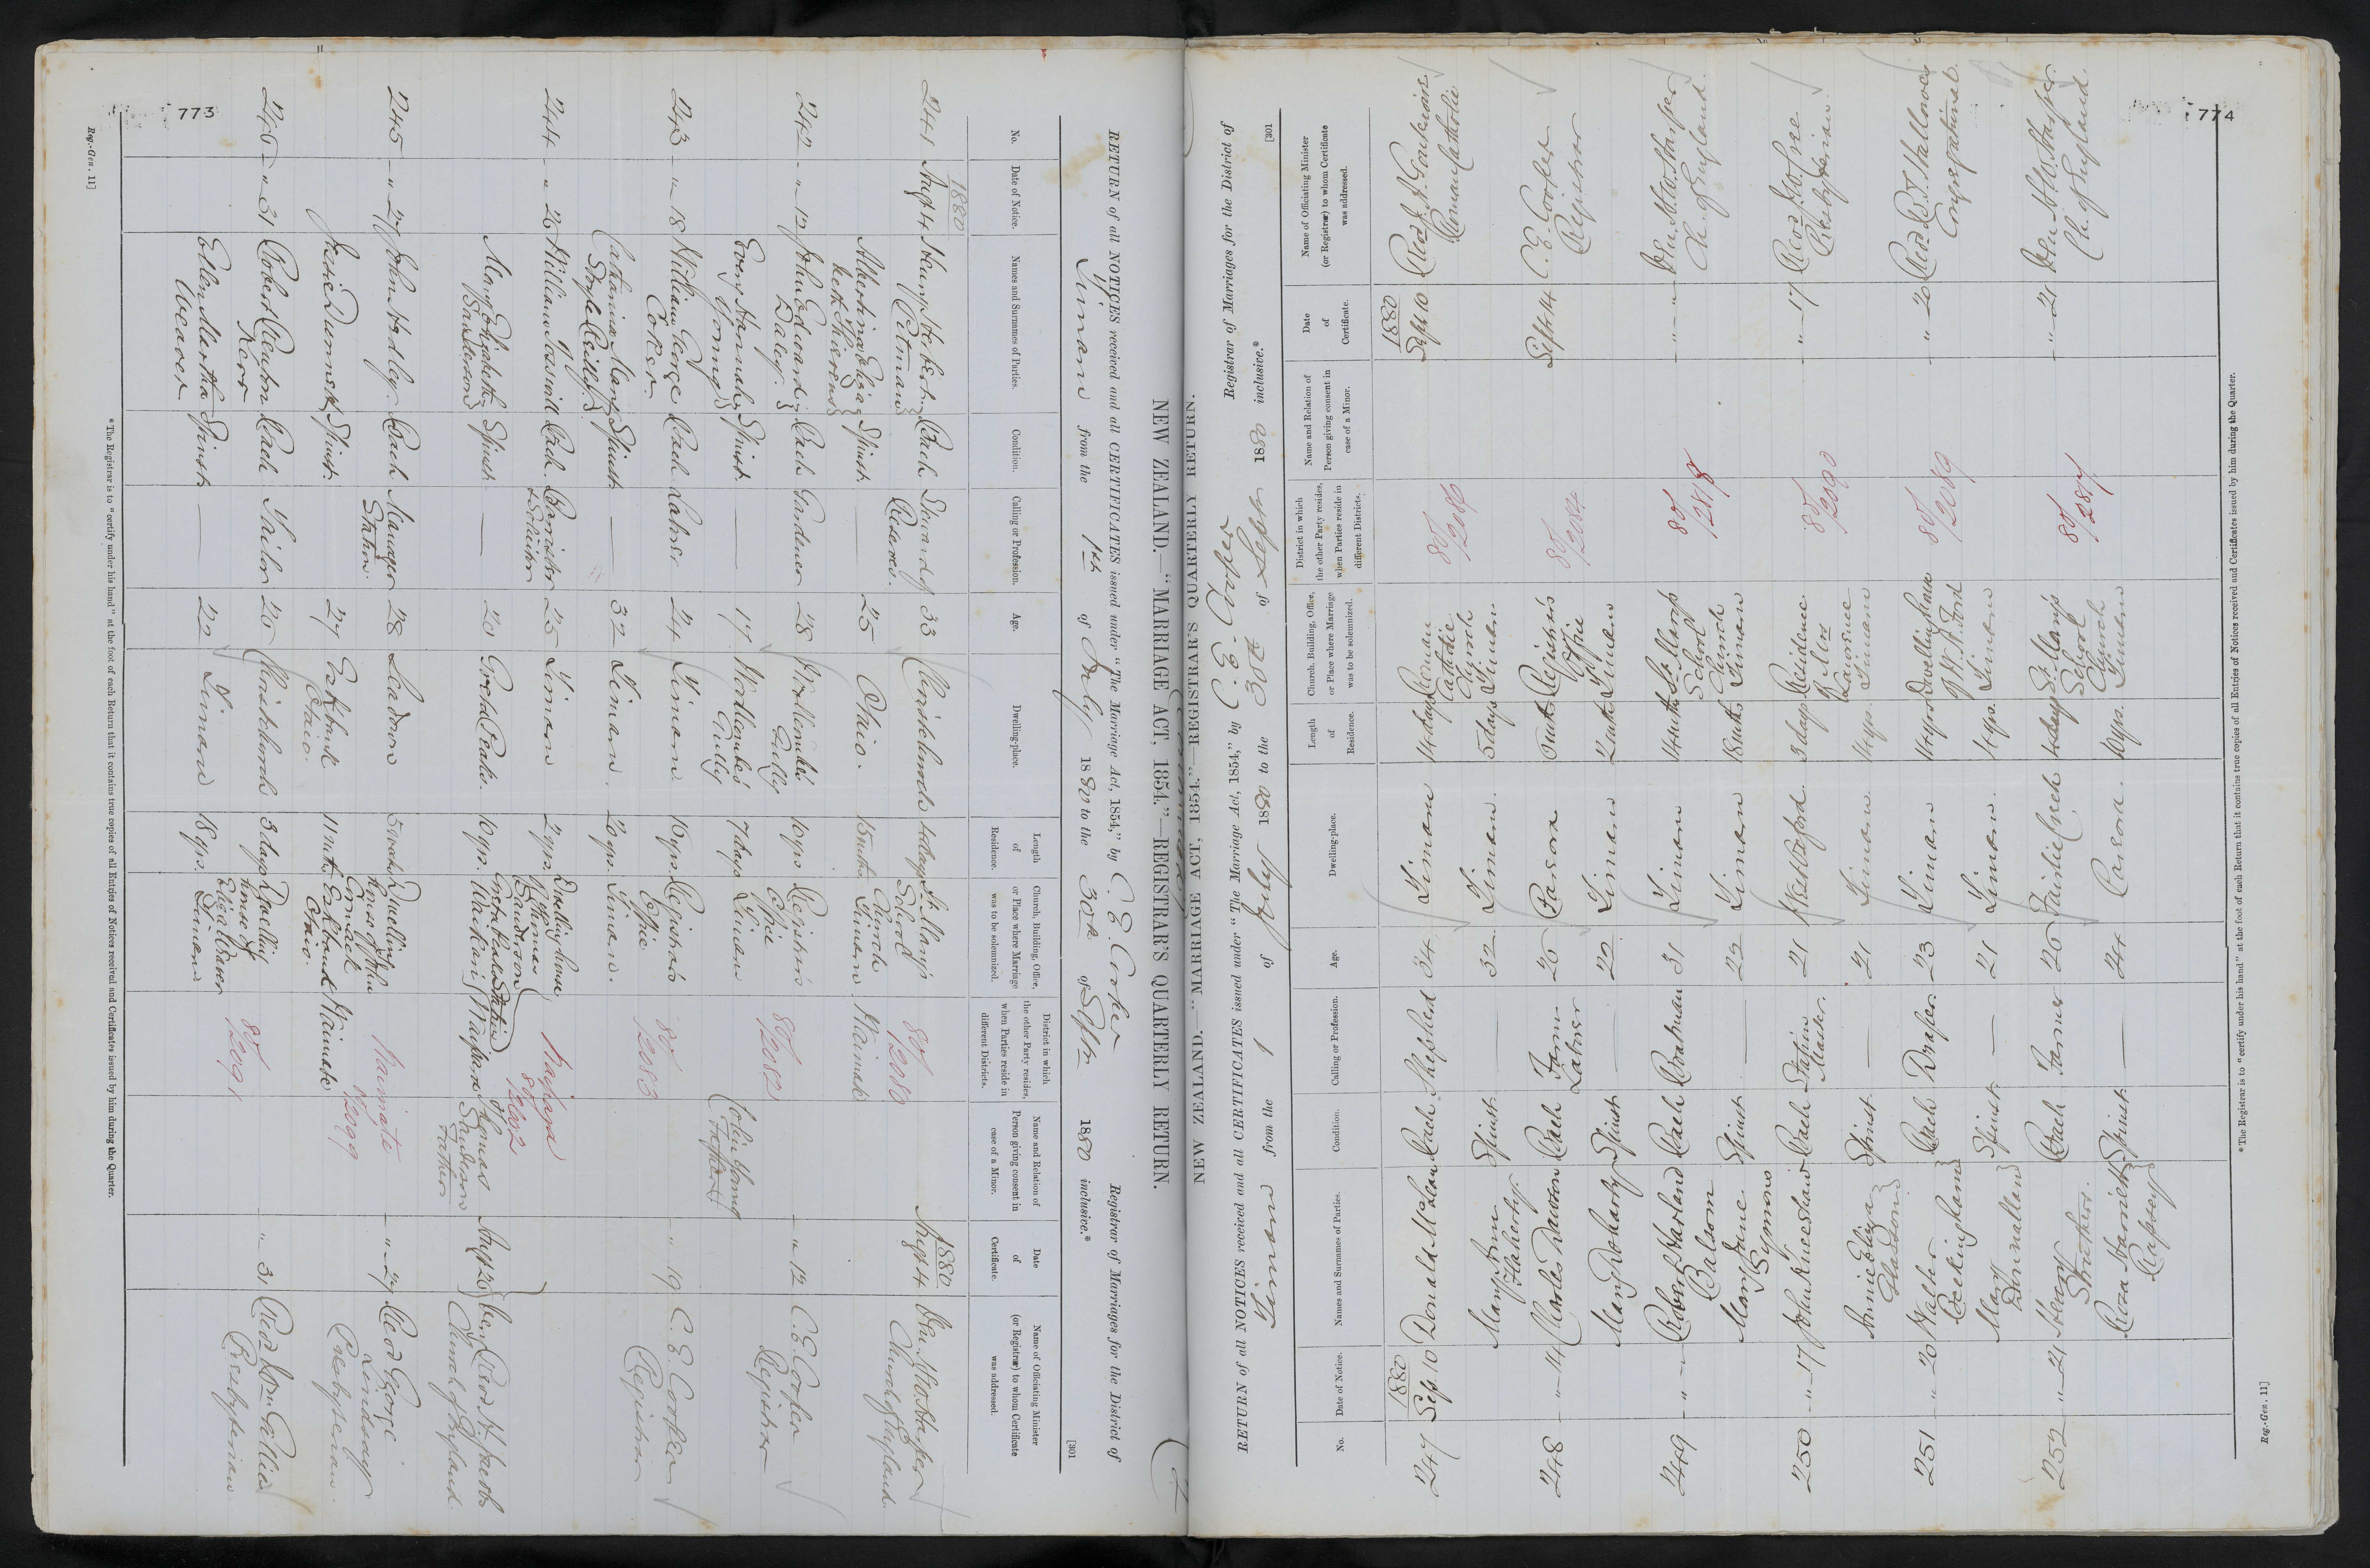 773
NEW ZEALAND.—"MARRIAGE ACT, 1854."—REGISTRAR'S QUARTERLY RETURN.
[301
RETURN of all NOTICES received and all CERTIFICATES issued under "The Marriage Act, 1854," by C. E. Cooper Registrar of Marriages for the District of
Timaru from the 1st of July 1880 to the 30th of Septr 1880 inclusive.*
No. Date of Notice. Names and Surnames of Parties. Condition. Calling or Profession. Age. Dwelling-place. Length of Residence. Church, Building, Office, or Place where Marriage was to be solemnized. District in which the other Party resides, when Parties reside in different Districts. Name and Relation of Person giving consent in case of a Minor. Date of Certificate. Name of Officiating Minister (or Registrar) to whom Certificate was addressed.
1880 1880
241 Augt 4 Henry Herbert Pitman Bach 33 Christchurch 4 days St. Mary's School Church Timaru 80/2080 Augt 4 Church of England
Albertina Spinst — 25 Otaio. 15 mths Waimate
242 " 12 John Edward Daley Bach Gardener 28 Gully 10 yrs Registrar's Office Timaru 80/2082 " 12 C. E. Cooper Registrar
Hannah Young Spinst — 17 Gully 7 days Colin Young
243 " 18 William George Coker Bach Labr 24 Timaru 16 yrs Registrar's Office Timaru. 80/2083 " 19 C. E. Cooper Registrar
Catherine Mary Reilly Spinst — 32 Timaru. 2 yrs.
244 " 26 William Bach Barrister & Solicitor 25 Timaru 2 yrs. Dwelling house of Thomas Sanderson Station Waikari Waipara 80/2602 Augt 26 Church of England
Mary Elizabeth Sanderson Spinst — 20 Greta Peaks. 10 yrs. Waipara Thomas Sanderson Father
245 " 27 John Hedley. Bach Manager Station. 28 5 weeks Dwelling house of John Esk bank Otaio. Waimate 80/2099 " 27 Revd George Lindsay Presbyterian.
Jessie Spinst. 27 Eskbank Otaio 11 mths Waimate
246 " 31 Robert Renton Kerr Bach Tailor 26 Christchurch 3 days Dwelling house of Timaru 80/2091 " 31 Revd Gillies Presbyterian
Ellen Martha Weaver Spinst — 22 Timaru 18 yrs.
*The Registrar is to "certify under his hand" at the foot of each Return that it contains true copies of all Entries of Notices received and Certificates issued by him during the Quarter.
Reg.-Gen. 11]
774
NEW ZEALAND.—"MARRIAGE ACT, 1854."—REGISTRAR'S QUARTERLY RETURN.
[301
RETURN of all NOTICES received and all CERTIFICATES issued under "The Marriage Act, 1854," by C. E. Cooper Registrar of Marriages for the District of
Timaru from the 1 of July 1880 to the 30th of Septr 1880 inclusive.*
No. Date of Notice. Names and Surnames of Parties. Condition. Calling or Profession. Age. Dwelling-place. Length of Residence. Church, Building, Office, or Place where Marriage was to be solemnized. District in which the other Party resides, when Parties reside in different Districts. Name and Relation of Person giving consent in case of a Minor. Date of Certificate. Name of Officiating Minister (or Registrar) to whom Certificate was addressed.
1880 1880
247 Sep. 10 Donald McLean Bach Shepherd 34 Timaru 14 days Roman Catholic Church Timaru 80/2086 Sept 10 Roman Catholic
Mary Ann Flaherty. Spinst — 32 Timaru. 5 days
248 " 14 Charles Dawson Bach Farm Labrer 26 Pareora 6 mts Registrar's Office Timaru 80/2084 Sept 14 C. E. Cooper Registrar
Mary Doharty Spinst — 22 Timaru 2 mths
249 " " Robert Harland Balsom Bach Boatman 31 Timaru 14 mths St. Mary's School Church Timaru 80/2818 " " Ch. of England.
Mary Jane Symons Spinst — 22 Timaru 18 mths
250 " 17 John Knee Shaw Bach Station Master. 21 3 days Residence of Mrs Laurence Timaru 80/2090 " 17 Presbyterian.
Annie Eliza Spinst. — 21 Timaru. 4 yrs.
251 " 20 Walter Beckingham Bach Draper 23 Timaru 4 yrs Dwelling house of W. A. Ford Timaru 80/2089 " 20 Congregational.
Mary Spinst. — 21 Timaru. 4 yrs.
252 " 21 Henry Struthers. Bach Farmer 26 Fairlie Creek 4 days St. Mary's School Church Timaru 80/2817 " 21 Ch. of England.
Rosa Harriett Spinst. — 24 Pareora. 10 yrs.
*The Registrar is to "certify under his hand" at the foot of each Return that it contains true copies of all Entries of Notices received and Certificates issued by him during the Quarter.
Reg.-Gen. 11]